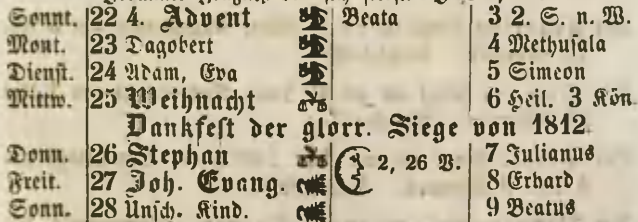 Sonnt. 22 4. Advent Beata 3 2. S. n. W.
Mont. 23 Dagobert 4 Methusala
Dienst. 24 Adam, Eva 5 Simeon
Mittw. 25 Weihnacht 6 Heil. 3 Kön.
Dankfest der glorr. Siege von 1812.
Donn. 26 Stephan 2, 26 V. 7 Julianus
Freit. 27 Joh. Evang. 8 Erhard
Sonn. 28 Unsch. Kind. 9 Beatus